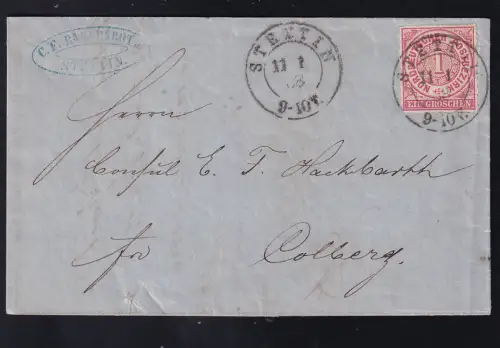 STETTIN.
STETTIN
11 1
68
9-10V.
NORDDEUTSCHER POSTBEZIRK
1
EIN GROSCHEN
STETTIN
11 1
9-10V.
Herrn
Consul E. F. Hackbarth
fr
Colberg.